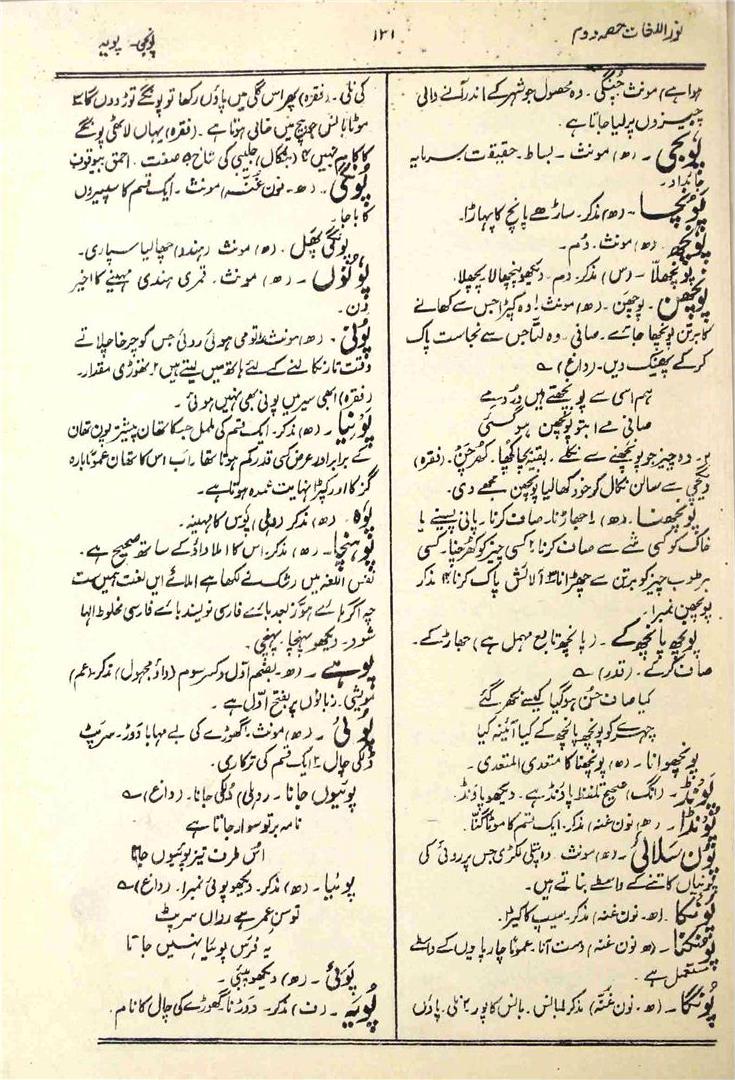 نور اللغات حصہ دوم
۱۳۱
پونجی - پویہ
ہوا ہے) مونث چنگی۔ وہ محصول جو شہر کے اندر آنے والی
چیزوں پر لیا جاتا ہے۔
پونجی۔ (ھ) مونث۔ بساط۔ حقیقت۔ سرمایہ
جائداد۔
پونچا۔ (ھ) مذکر۔ ساڑھے پانچ کا پہاڑا۔
پونچھ۔ (ھ) مونث۔ دُم۔
پونچھلّا۔ (س) مذکر۔ دم۔ دیکھو پنچھالا پچھلا۔
پونچھن۔ پوچھن۔ (ھ) مونث۔ ۱ وہ کپڑا جس سے کھانے
کا برتن پونچھا جائے۔ صافی۔ وہ لتّا جس سے نجاست پاک
کر کے پھینک دیں۔ (داغ) ؎
ہم اسی سے پونچھتے ہیں دُردِ مے
صافیِ مے اب تو پونچھن ہو گئی
۲۔ وہ چیز جو پونچھنے سے نکلے۔ بقیہ بچا کھچا۔ کھرچن۔ (فقرہ)
دیگچی سے سالن نکال کو خود کھا لیا پونچھن مجھے دی۔
پونچھنا۔ (ھ) ۱ جھاڑنا۔ صاف کرنا۔ پانی پسینے یا
خاک کو کسی شے سے صاف کرنا ۲ کسی چیز کو کھرچنا۔ کسی
مرطوب چیز کو برتن سے چھڑانا ۳ آلائش پاک کرنا ۴ مذکر
پونچھن نمبر ۱۔
پونچھ پانچھ کے۔ (پانچھ تابع مہمل ہے) جھاڑ کے۔
صاف کر کے۔ (قدر) ؎
کیا صاف حسن ہو گیا گیسو بکھر گئے
چہرے کو پونچھ پانچھ کے کیا آئینہ کیا
پونچھوانا۔ (ھ) پونچھنا کا متعدی المتعدی۔
پونڈ۔ (انگ) صحیح تلفظ پاؤنڈ ہے۔ دیکھو پاؤنڈ۔
پونڈا۔ (ھ۔ نون غنہ) مذکر۔ ایک قسم کا موٹا گنّا۔
پون سلائی۔ (ھ) مونث۔ وہ پتلی لکڑی جس پر روئی کی
پونیاں کاتنے کے واسطے بناتے ہیں۔
پونکا۔ (ھ۔ نون غنہ) مذکر۔ سیپ کا کیڑا۔
پونکنا۔ (ھ نون غنہ) دست آنا۔ عموماً چارپایوں کے واسطے
مستعمل ہے۔
پونگا۔ (ھ۔ نون غُنّہ) مذکر لمبا بانس۔ بانس کا پور ۲ نلی۔ پاؤں
کی نلی۔ (فقرہ) پھر اس گلی میں پاؤں رکھا تو پونگے توڑ دوں گا ۳
موٹا بانس جو بیچ میں خالی ہوتا ہے۔ (فقرہ) یہاں لاٹھی پونگے
کا کام نہیں ۴ (بنگال) جلیبی کی شاخ ۵ صفت۔ احمق بیوقوف
پونگی۔ (ھ۔ نون غُنّہ) مونث۔ ایک قسم کا سپیروں
کا باجا۔
پونگی پھل۔ (ھ) مونث (ہندو) چھالیا سپاری۔
پونوں۔ (ھ) مونث۔ قمری ہندی مہینے کا اخیر
دن۔
پونی۔ (ھ) مونث ۱ تومی ہوئی روئی جس کو چرخا چلاتے
وقت تار نکالنے کے لئے ہاتھ میں لیتے ہیں ۲ تھوڑی مقدار۔
(فقرہ) ابھی سیر میں پونی بھی نہیں ہوئی۔
پونیا۔ (ھ) مذکر۔ ایک قسم کی ململ جس کا تھان پیشتر پون تھان
کے برابر اور عرض کسی قدر کم ہوتا تھا۔ اب اس کا تھان عموماً بارہ
گز کا اور کپڑا نہایت عمدہ ہوتا ہے۔
پوہ۔ (ھ) مذکر (دہلی) پوس کا مہینہ۔
پوہنچا۔ (ھ) مذکر۔ اس کا املا واؤ کے ساتھ صحیح ہے۔
نفس اللغہ میں رشک نے لکھا ہے املائے ایں لغت ہمیں ست
چہ اگر ہائے ہوّز بعد بائے فارسی نویسند بائے فارسی مخلوط الہا
شود۔ دیکھو پہنچا۔ پہنچی۔
پوہے۔ (ھ۔ بضم اوّل وکسر سوم (واؤ مجہول) مذکر۔ (عم)
مویشی۔ زبانوں پر بفتح اوّل ہے۔
پوئی۔ (ھ) مونث ۱ گھوڑے کی بے مہابا دوڑ۔ سرپٹ
دُلکی چال ۲ ایک قسم کی ترکاری۔
پوئیوں جانا۔ (دہلی) دُلکی جانا۔ (داغ) ؎
نامہ بر تو سوار جاتا ہے
اس طرف تیز پوئیوں جانا
پوئیا۔ (ھ) مذکر۔ دیکھو پوئی نمبر ۱۔ (داغ) ؎
توسنِ عمر ہے رواں سرپٹ
یہ فرس پوئیا نہیں جاتا
پوئی۔ (ھ) دیکھو پئی۔
پویہ۔ (ف) مذکر۔ دوڑنا۔ گھوڑے کی چال کا نام۔